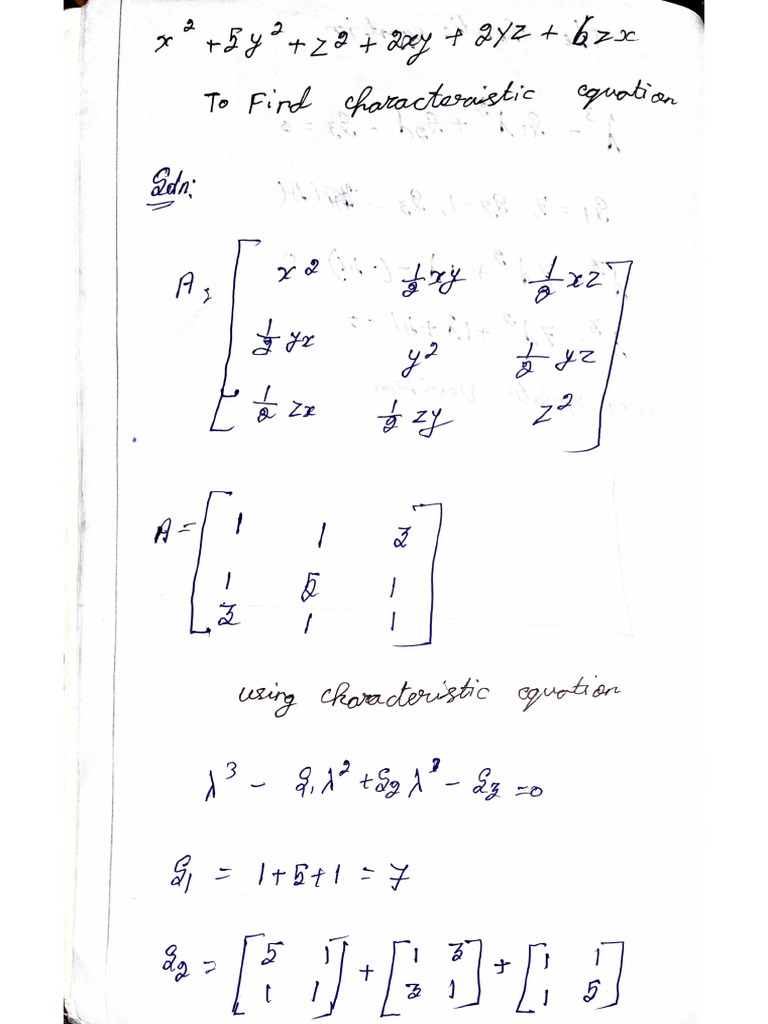 x² + 5y² + z² + 2xy + 2yz + 6zx
To Find characteristic equation
Soln:
A = [ x² ½xy ½xz
½yx y² ½yz
½zx ½zy z² ]
A = [ 1 1 3
1 5 1
3 1 1 ]
using characteristic equation
λ³ - S₁λ² + S₂λ - S₃ = 0
S₁ = 1+5+1 = 7
S₂ = [ 5 1 ] + [ 1 3 ] + [ 1 1 ]
[ 1 1 ] [ 3 1 ] [ 1 5 ]